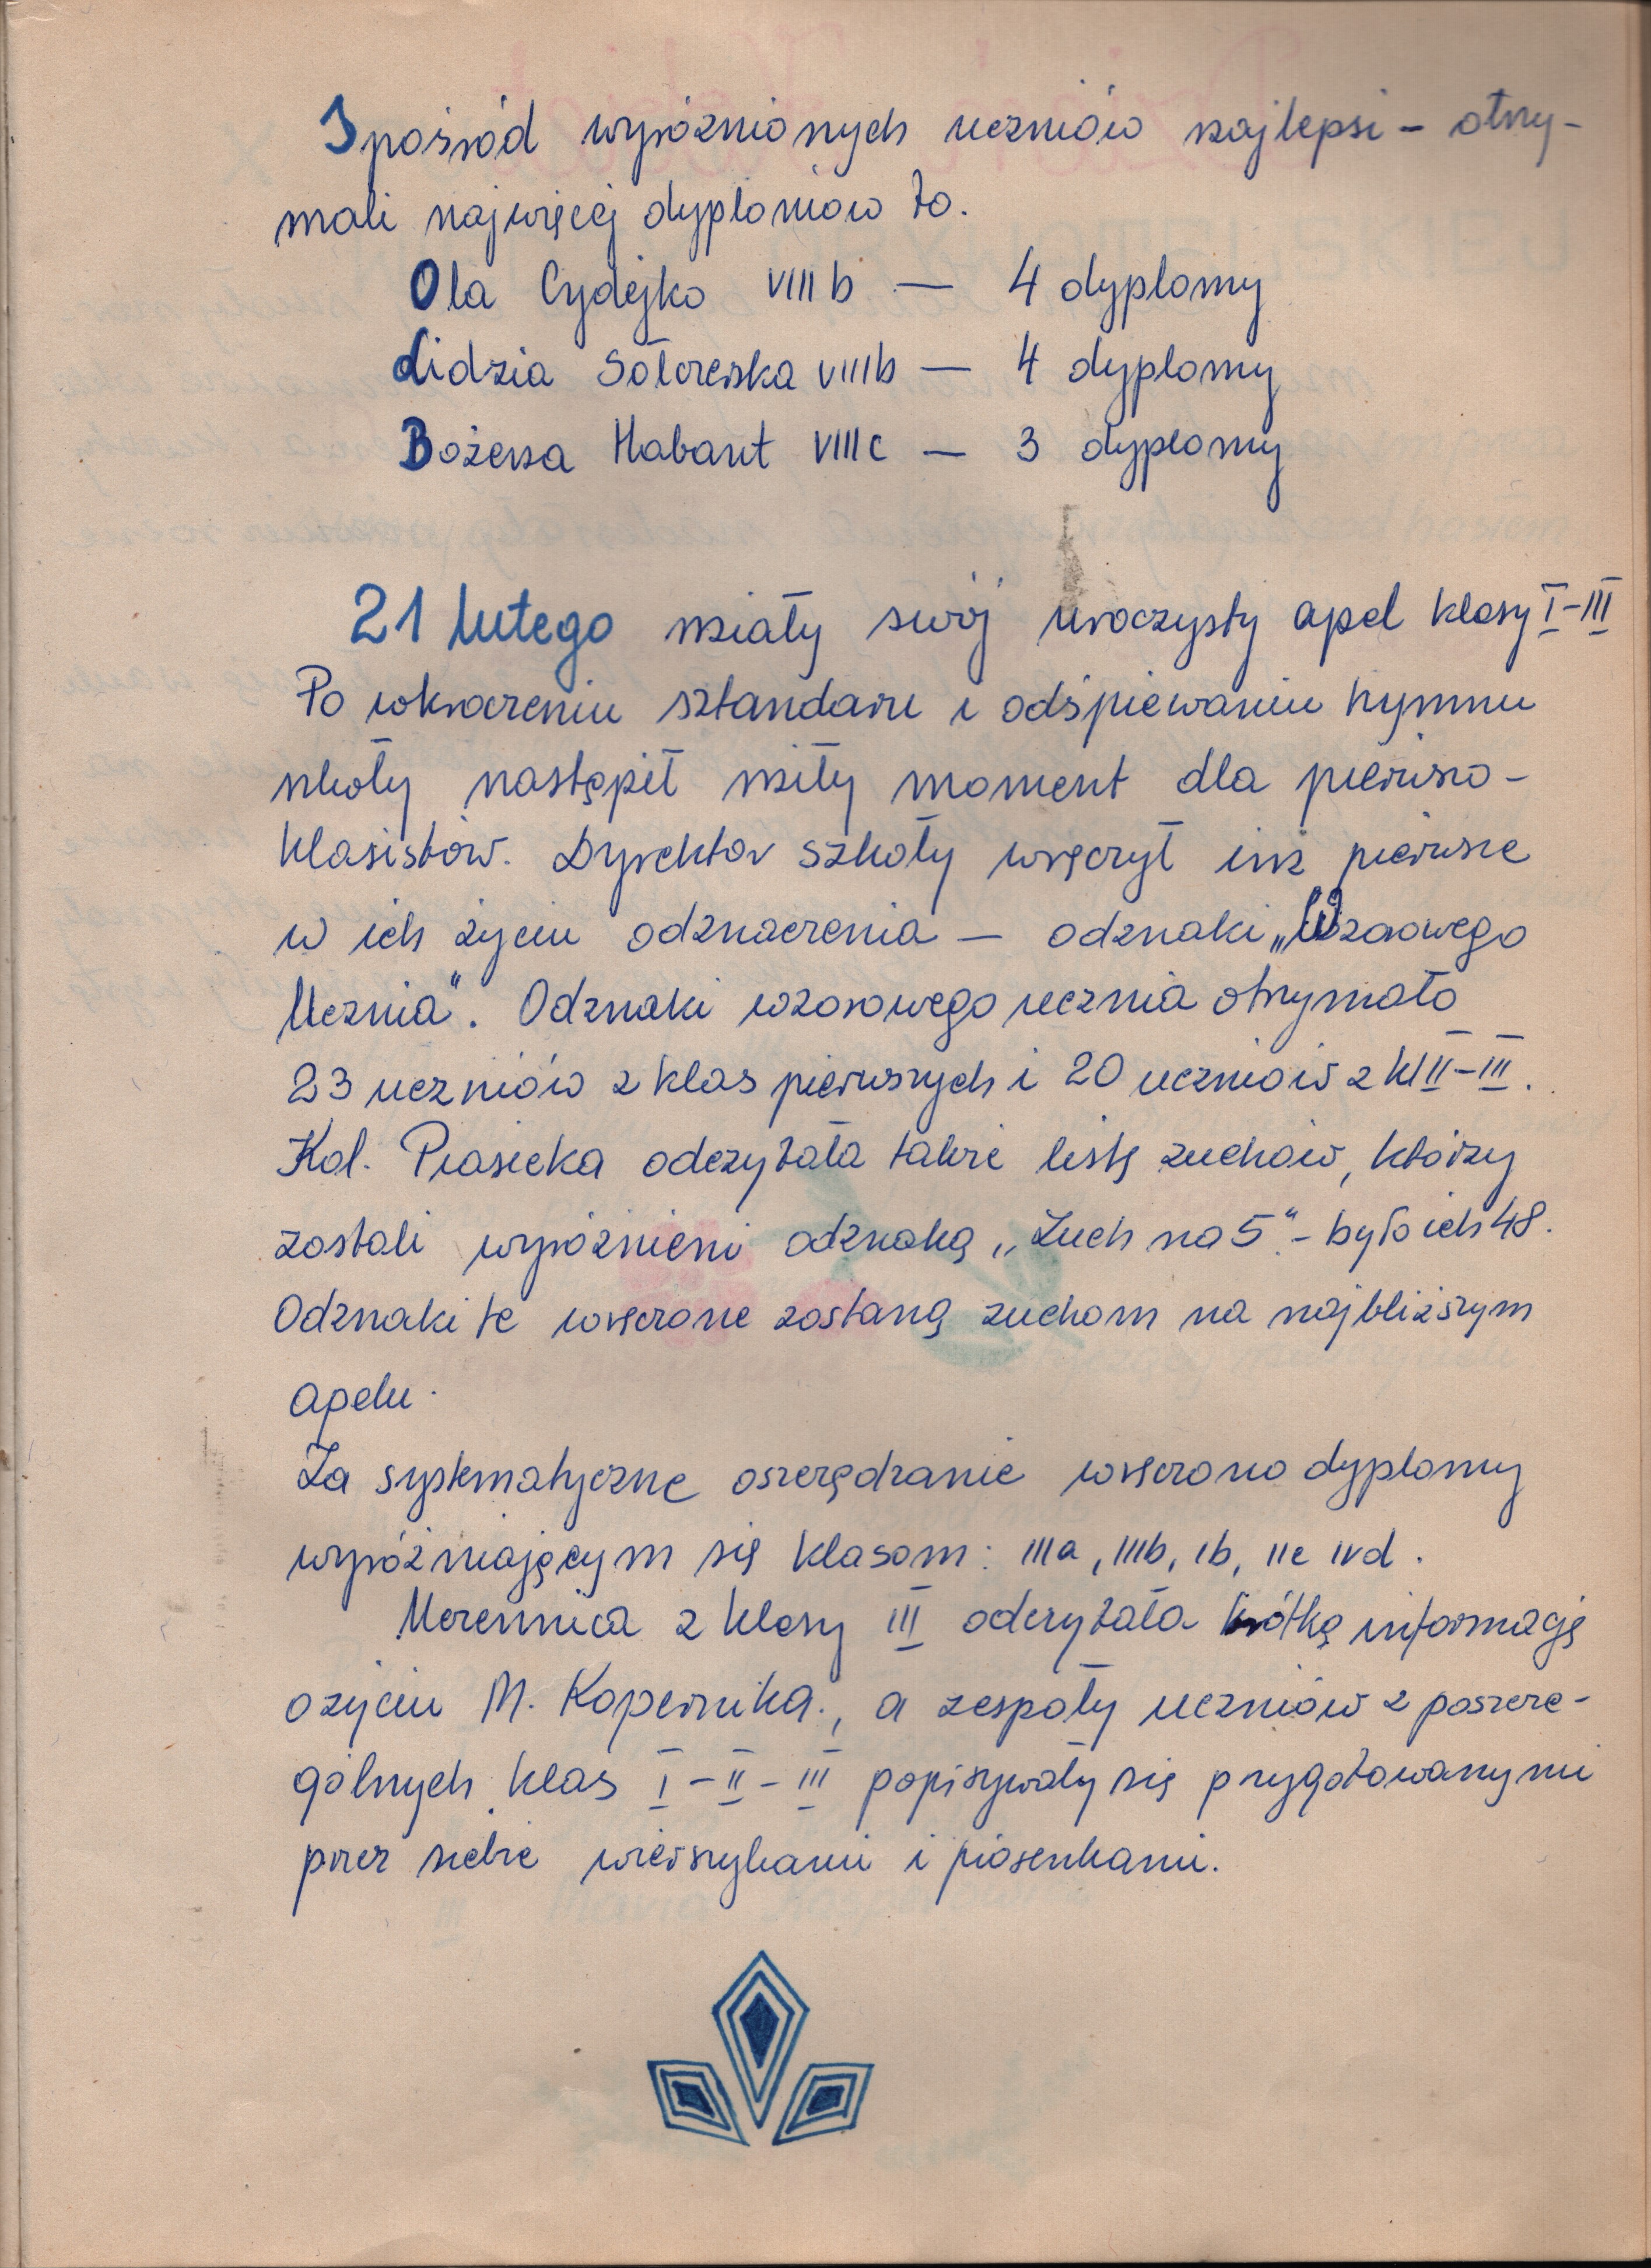 Spośród wyróżnionych uczniów najlepsi – otrzy-
mali najwięcej dyplomów to.
Ola Cydejko VIII b — 4 dyplomy
Lidzia VIII b — 4 dyplomy
Bożena Habant VIII c — 3 dyplomy
21 lutego miały swój uroczysty apel klasy I-III
Po wkroczeniu sztandaru i odśpiewaniu hymnu
szkoły nastąpił miły moment dla pierwszo-
klasistów. Dyrektor szkoły wręczył im pierwsze
w ich życiu odznaczenia — odznaki „Wzorowego
Ucznia". Odznaki wzorowego ucznia otrzymało
23 uczniów z klas pierwszych i 20 uczniów z kl II-III.
Kol. Piasecka odczytała także listę zuchów, którzy
zostali wyróżnieni odznaką „Zuch na 5" - było ich 48.
Odznaki te wręczone zostaną zuchom na najbliższym
apelu.
Za systematyczne oszczędzanie wręczono dyplomy
wyróżniającym się klasom: III a, III b, I b, II c IV d.
Uczennica z klasy III odczytała krótką informację
o życiu M. Kopernika., a zespoły uczniów z poszcze-
gólnych klas I - II - III popisywały się przygotowanymi
przez siebie wierszykami i piosenkami.